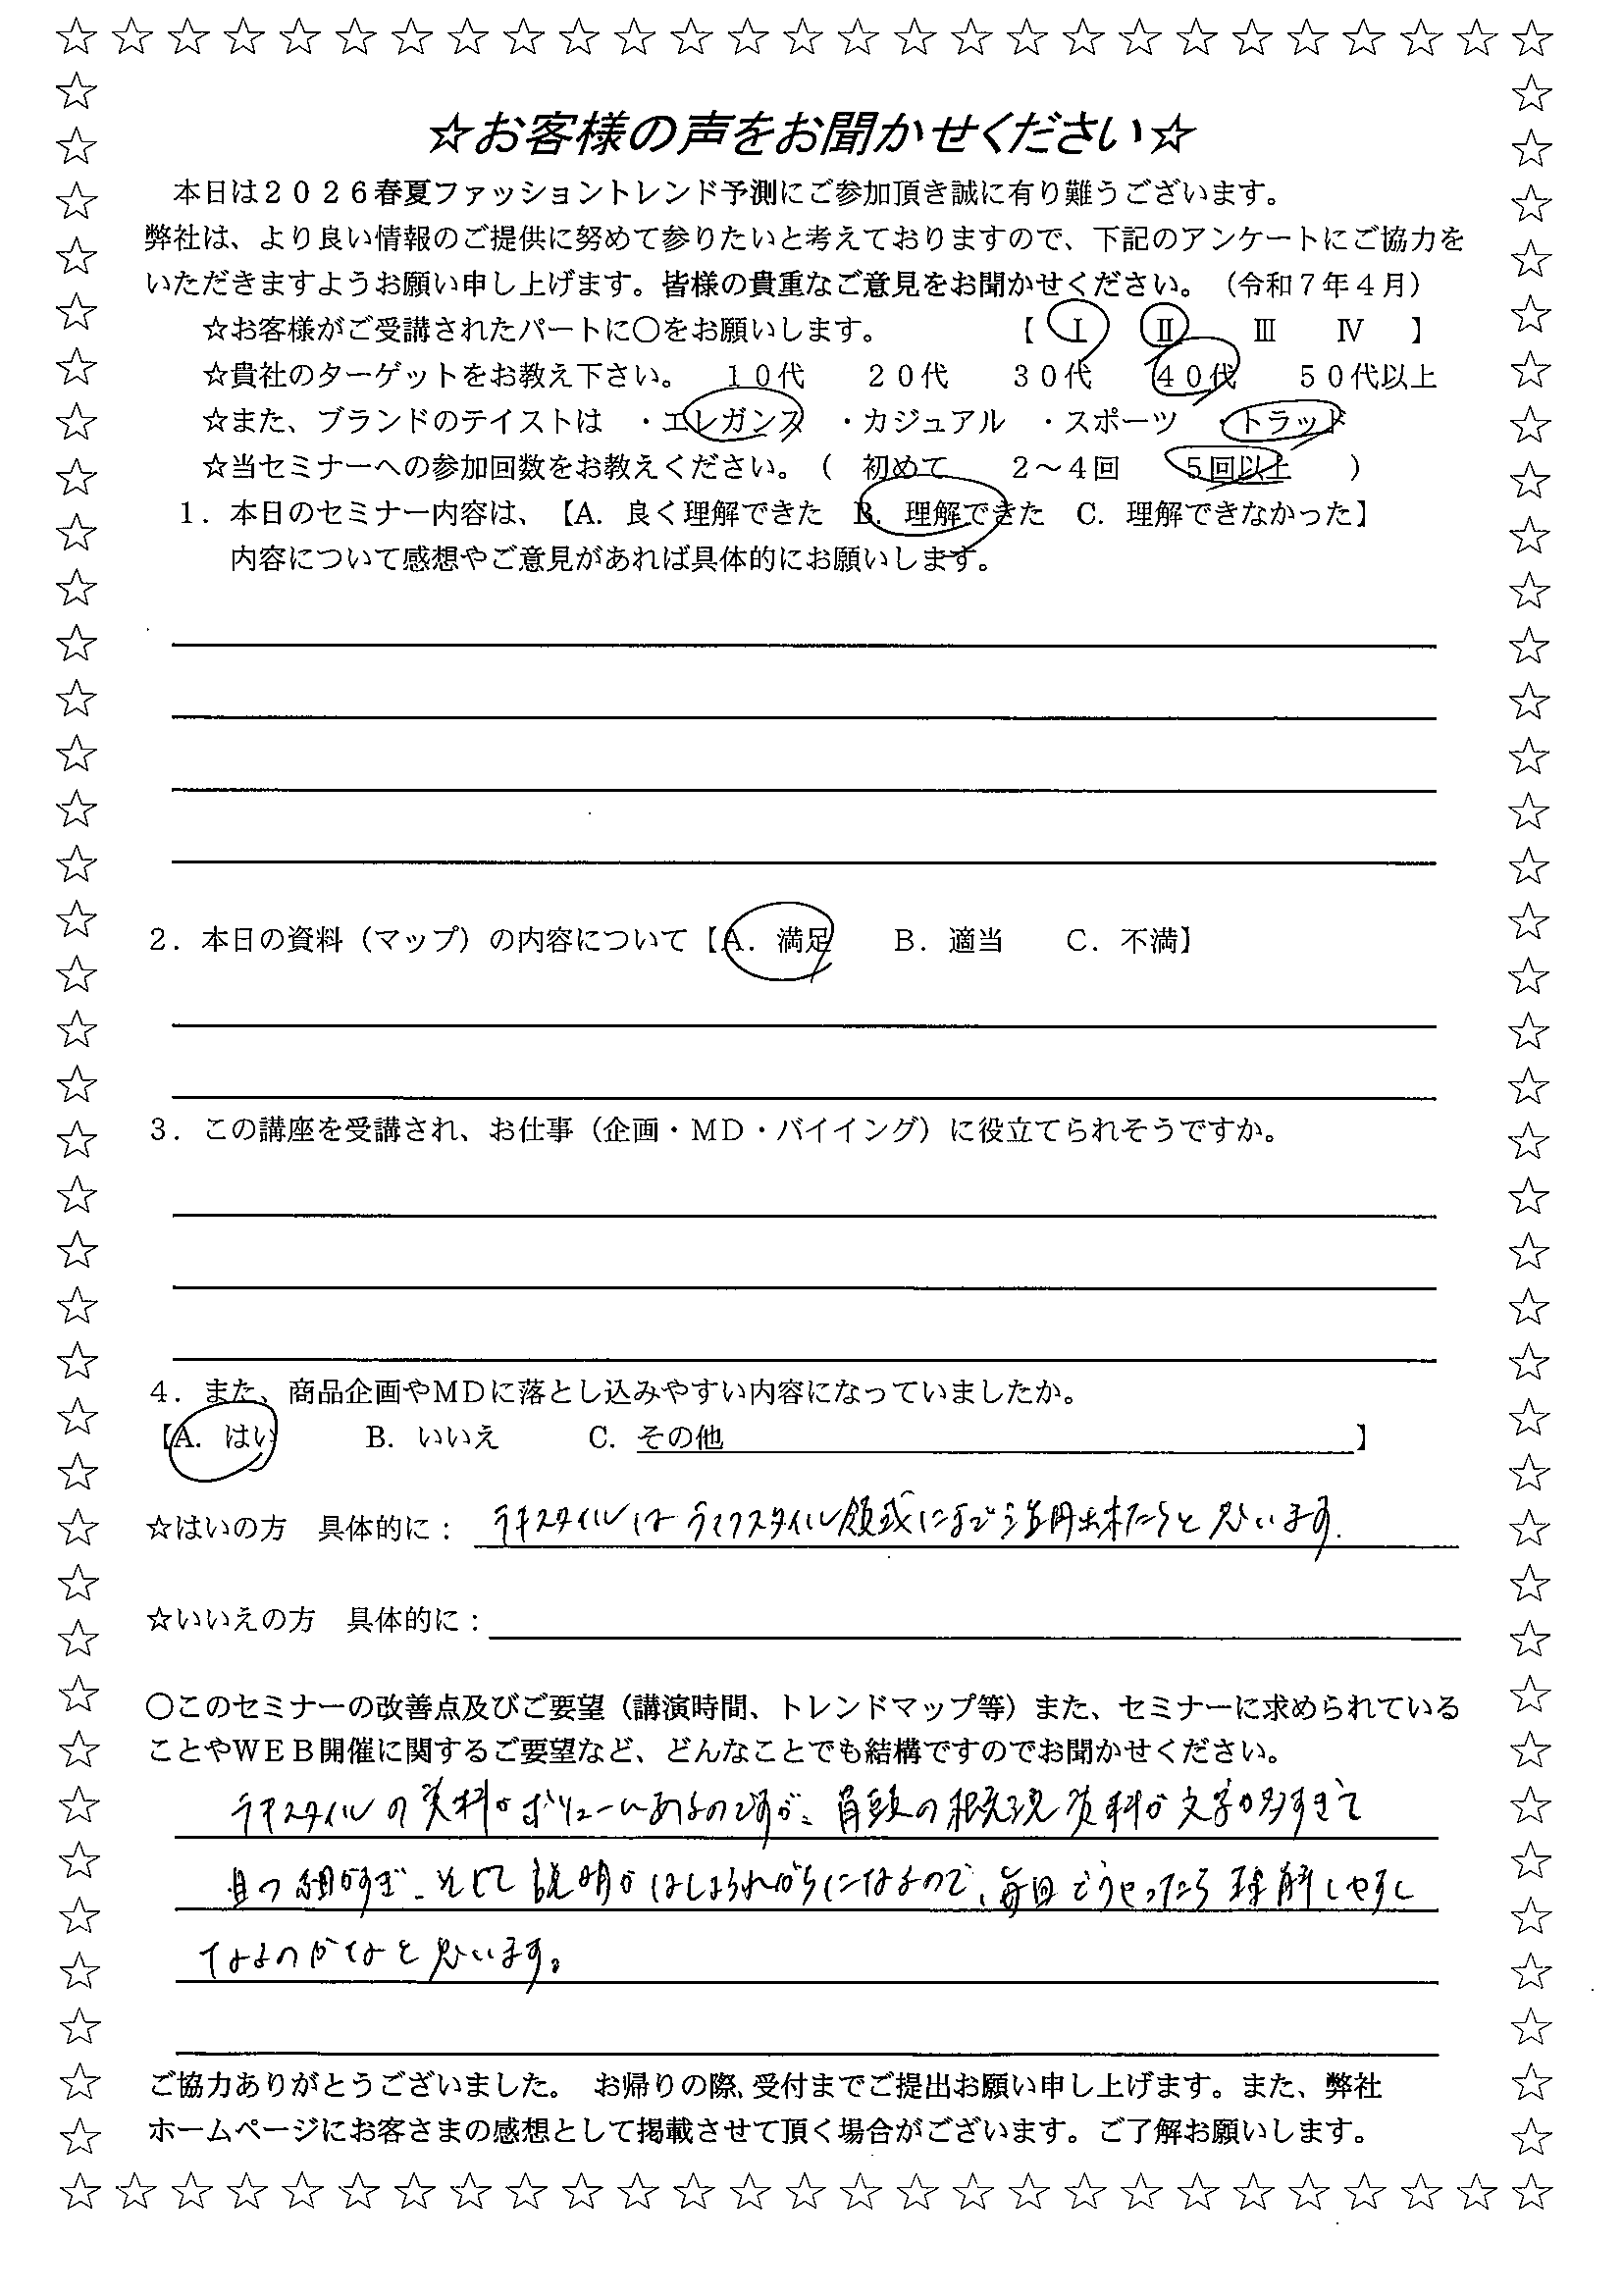 ☆お客様の声をお聞かせください☆
本日は2026春夏ファッショントレンド予測にご参加頂き誠に有り難うございます。
弊社は、より良い情報のご提供に努めて参りたいと考えておりますので、下記のアンケートにご協力を
いただきますようお願い申し上げます。皆様の貴重なご意見をお聞かせください。（令和7年4月）
☆お客様がご受講されたパートに〇をお願いします。 【 Ⅰ Ⅱ Ⅲ Ⅳ 】
☆貴社のターゲットをお教え下さい。 10代 20代 30代 40代 50代以上
☆また、ブランドのテイストは ・エレガンス ・カジュアル ・スポーツ ・トラッド
☆当セミナーへの参加回数をお教えください。（ 初めて 2～4回 5回以上 ）
1．本日のセミナー内容は、【A．良く理解できた B．理解できた C．理解できなかった】
内容について感想やご意見があれば具体的にお願いします。
2．本日の資料（マップ）の内容について【A．満足 B．適当 C．不満】
3．この講座を受講され、お仕事（企画・MD・バイイング）に役立てられそうですか。
4．また、商品企画やMDに落とし込みやすい内容になっていましたか。
【A．はい B．いいえ C．その他 】
☆はいの方 具体的に： テキスタイルはライフスタイル領域にまで活用出来たらと思います。
☆いいえの方 具体的に：
〇このセミナーの改善点及びご要望（講演時間、トレンドマップ等）また、セミナーに求められている
ことやWEB開催に関するご要望など、どんなことでも結構ですのでお聞かせください。
テキスタイルの資料がボリュームあるのですが、冒頭の概況資料が文字が多すぎて
且つ細かすぎ、そして説明がはしょられがちになるので、毎回どうやったら理解しやすく
なるのかなと思います。
ご協力ありがとうございました。 お帰りの際、受付までご提出お願い申し上げます。また、弊社
ホームページにお客さまの感想として掲載させて頂く場合がございます。ご了解お願いします。